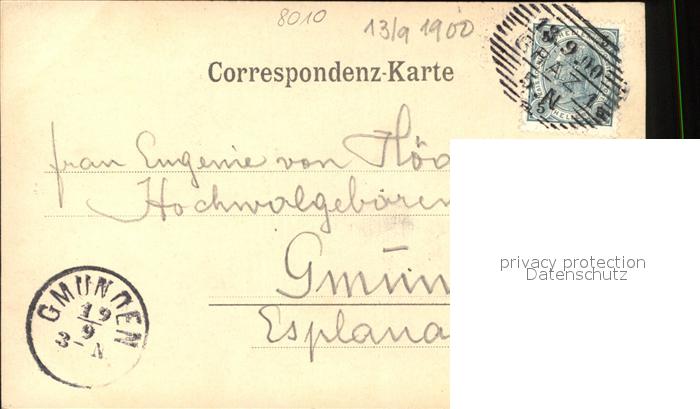 8010
13/9 1900
Correspondenz-Karte
13 9 00
GRAZ 1
5·N
frau Eugenie von
Hochwolgeboren
Gmun
Esplana
GMUNDEN
19
9
3- N
privacy protection
Datenschutz